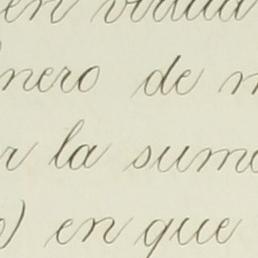 en virtud
nero de m
r la suma
) en que